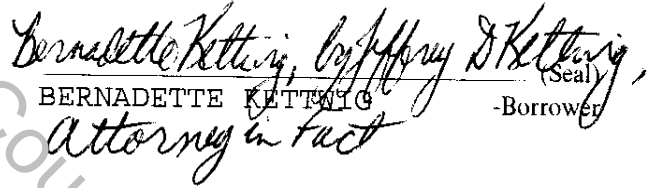 Bernadette Kettwig, by Jeffrey D Kettwig,
(Seal)
BERNADETTE KETTWIG -Borrower
Attorney in Fact